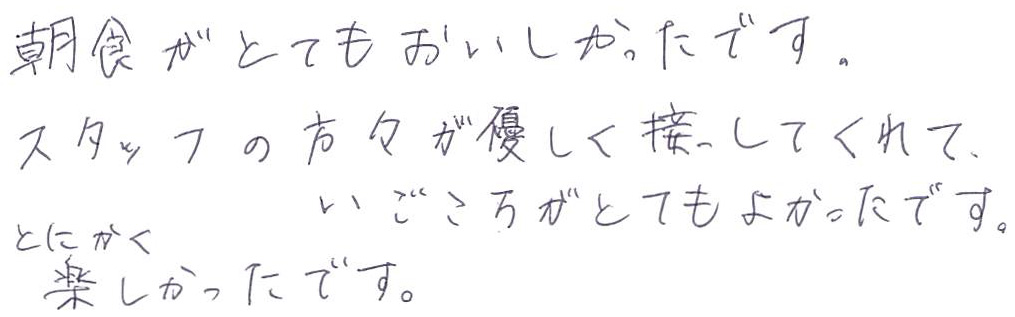 朝食がとてもおいしかったです。
スタッフの方々が優しく接してくれて、
いごころがとてもよかったです。
とにかく
楽しかったです。